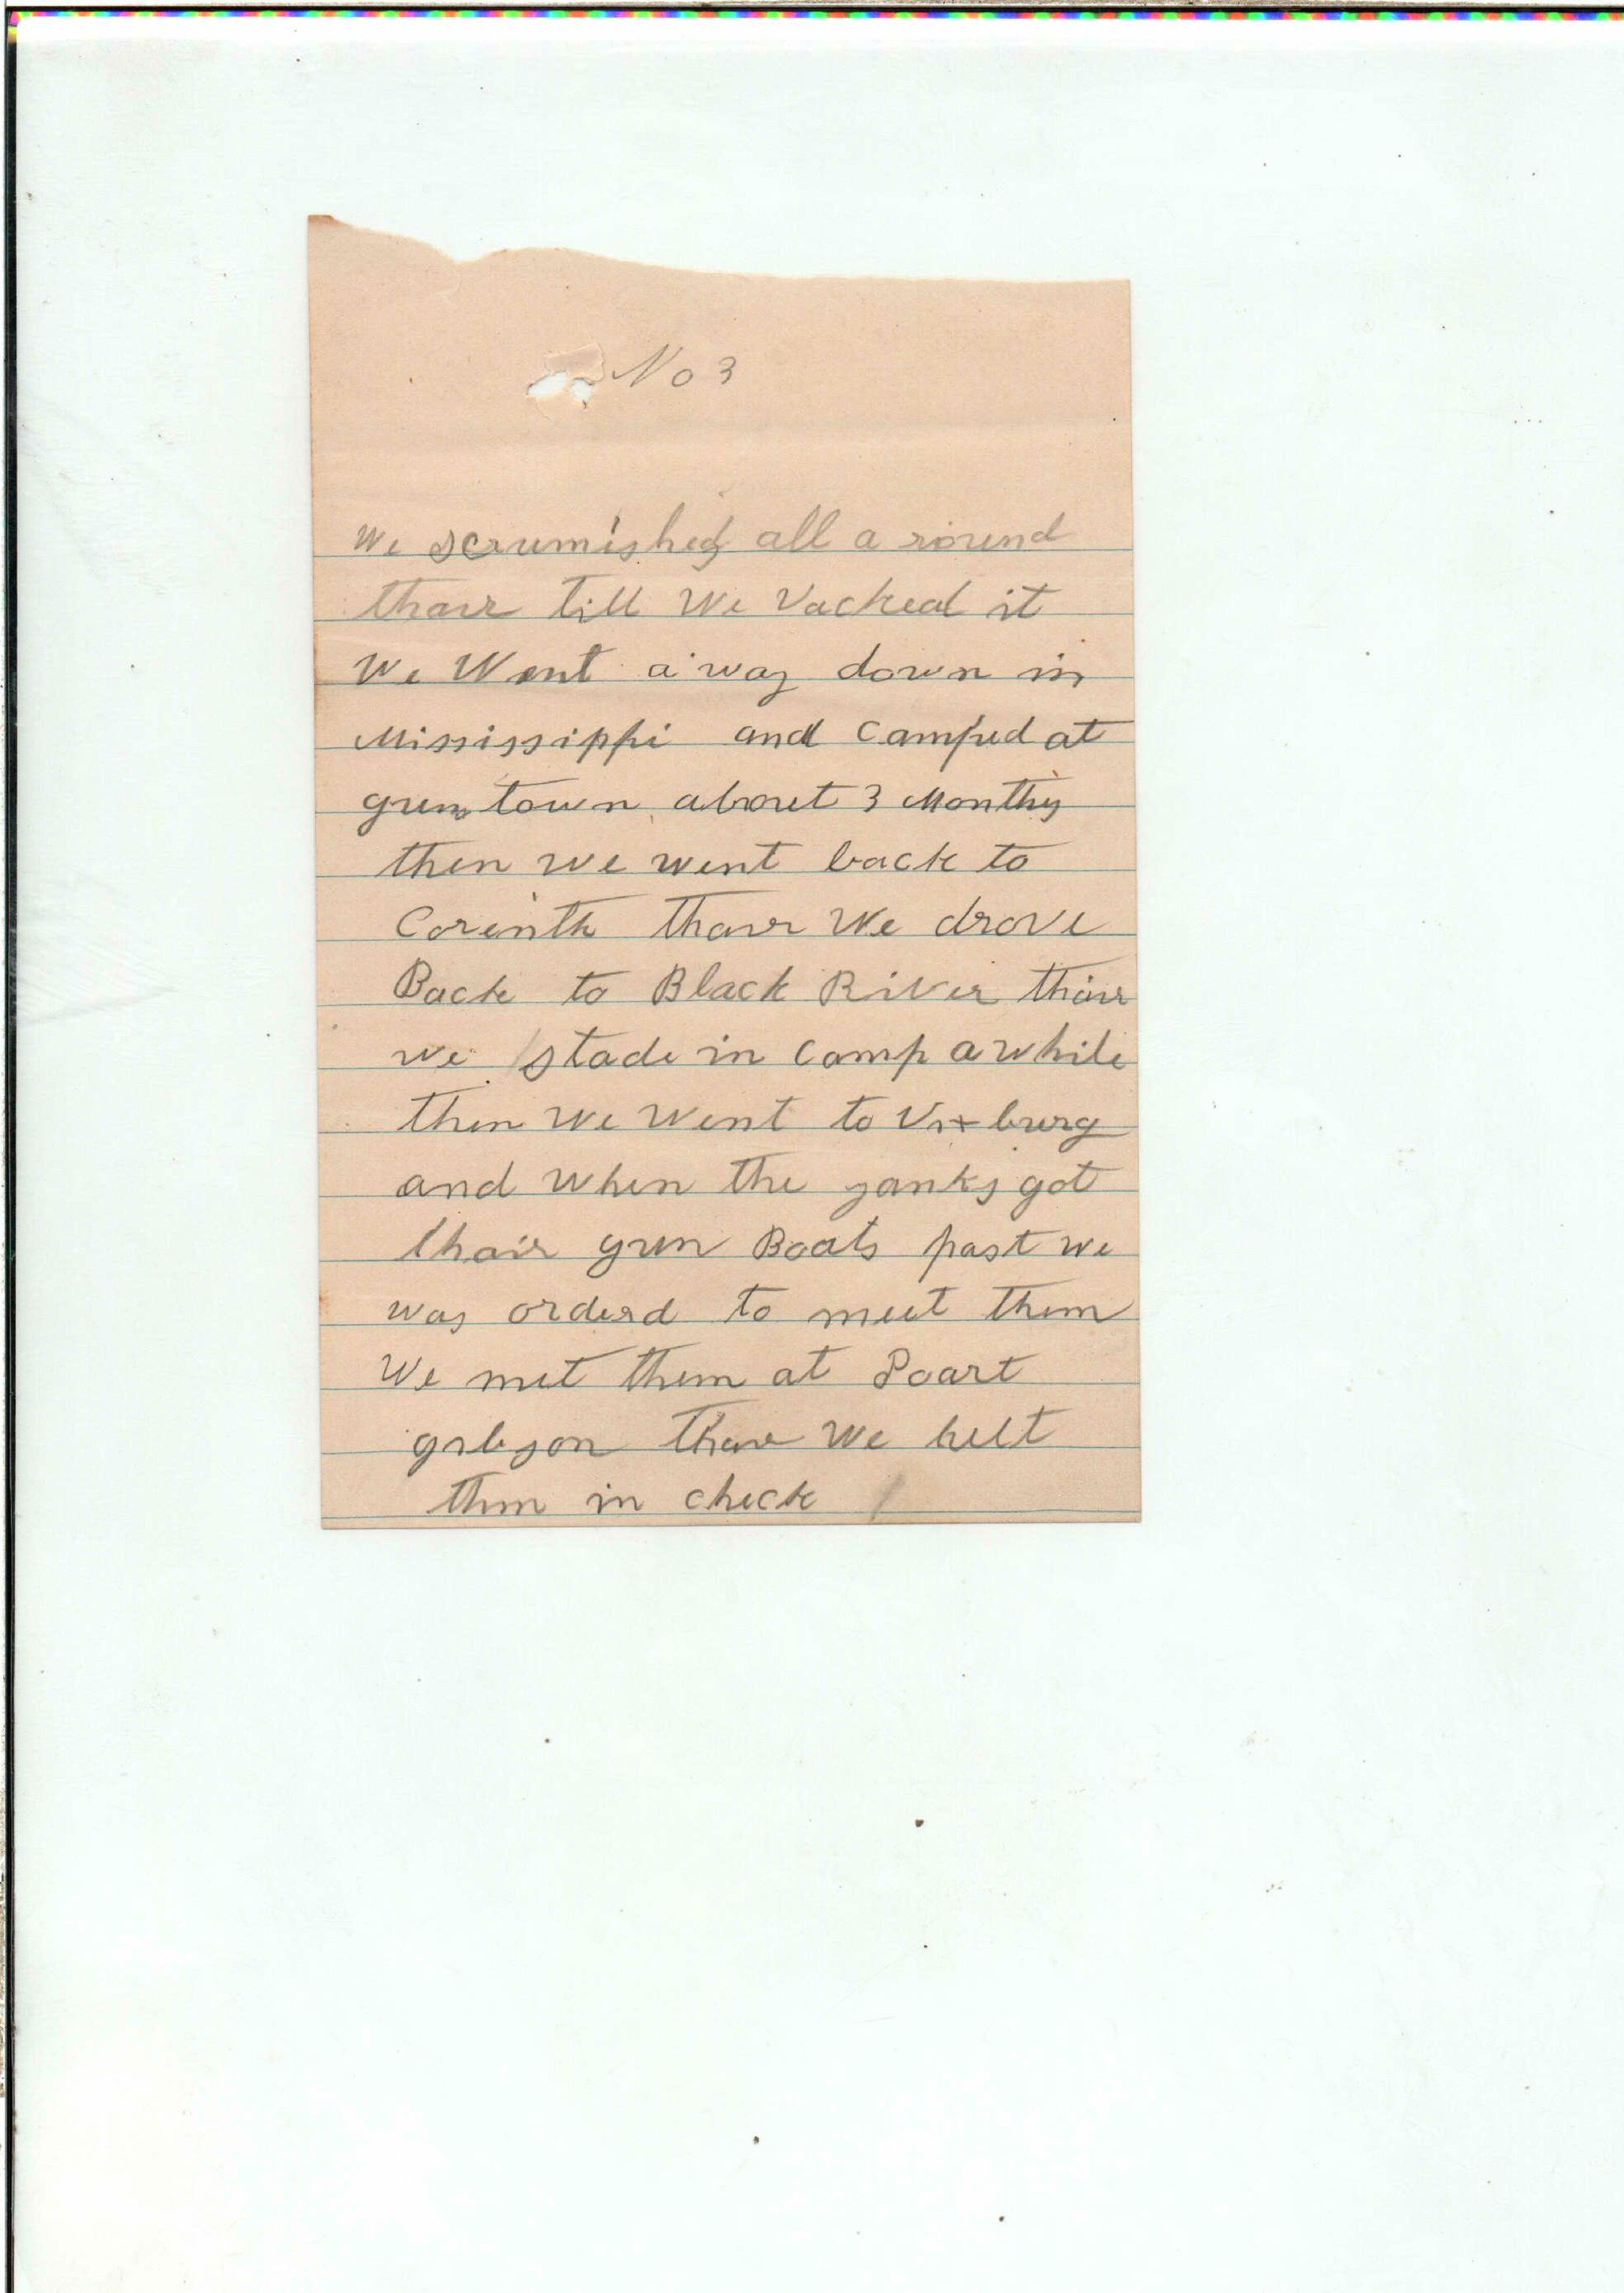 No 3
We scrumished all a round
thair till We Vacked it
We Went a way down in
Mississippi and Camped at
gun town about 3 Months
then we went back to
Corinth thair We drove
Back to Black River thair
we stade in Camp a while
then We Went to Vixburg
and When the yanks got
thair gun Boats past we
was orderd to meet them
We met them at Poart
gibson thair We helt
them in check